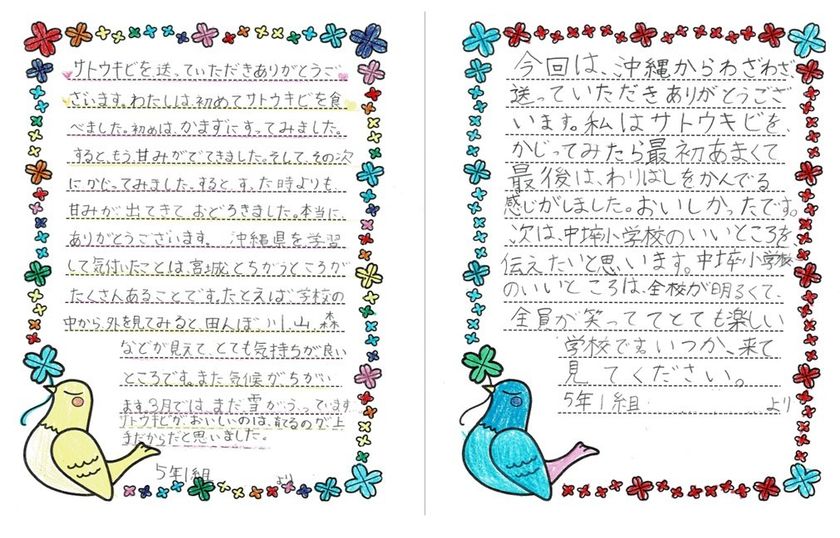 サトウキビを、送っていただきありがとうご
ざいます。わたしは、初めてサトウキビを食
べました。初めは、かまずにすってみました。
すると、もう甘みがでてきました。そして、その次
にかじってみました。すると、すった時よりも、
甘みが、出てきて、おどろきました。本当に、
ありがとうございます。 沖縄県を学習
して気付いたことは、宮城とちがうところが
たくさんあることです。たとえば、学校の
中から、外を見てみると、田んぼ、川、山、森
などが見えて、とても気持ちが良い
ところです。また気候がちがい
ます。3月では、まだ雪がふっています
サトウキビが、おいしいのは、育てるのが上
手だからだと思いました。
5年1組 より
今回は、沖縄からわざわざ
送っていただきありがとうござ
います。私はサトウキビを、
かじってみたら最初あまくて
最後は、わりばしをかんでる
感じがしました。おいしかったです。
次は、中埣小学校のいいところを、
伝えたいと思います。中埣小学校
のいいところは、全校が明るくて、
全員が笑っててとても楽しい
学校です。いつか、来て
見てください。
5年1組 より